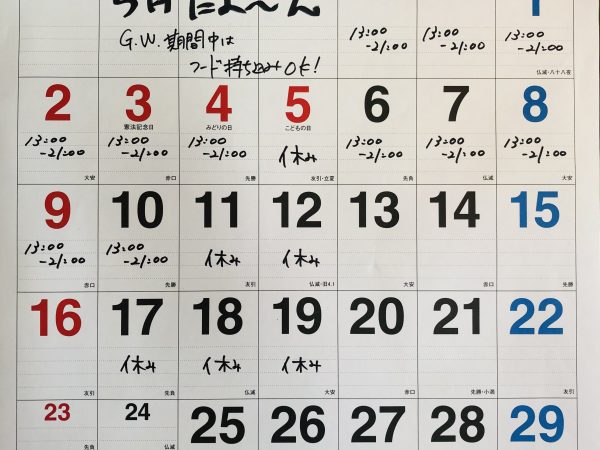 5月だよ〜ん 1
G.W.期間中は
フード持ち込みOK!
13:00 13:00 13:00
-21:00 -21:00 -21:00
仏滅・八十八夜
2 3 4 5 6 7 8
憲法記念日 みどりの日 こどもの日
13:00 13:00 13:00 休み 13:00 13:00 13:00
-21:00 -21:00 -21:00 -21:00 -21:00 -21:00
大安 赤口 先勝 友引・立夏 先負 仏滅 大安
9 10 11 12 13 14 15
13:00 13:00 休み 休み
-21:00 -21:00
赤口 先勝 友引 仏滅・旧4.1 大安 赤口 先勝
16 17 18 19 20 21 22
休み 休み 休み
友引 先負 仏滅 大安 赤口 先勝・小満 友引
23 24 25 26 27 28 29
先負 仏滅